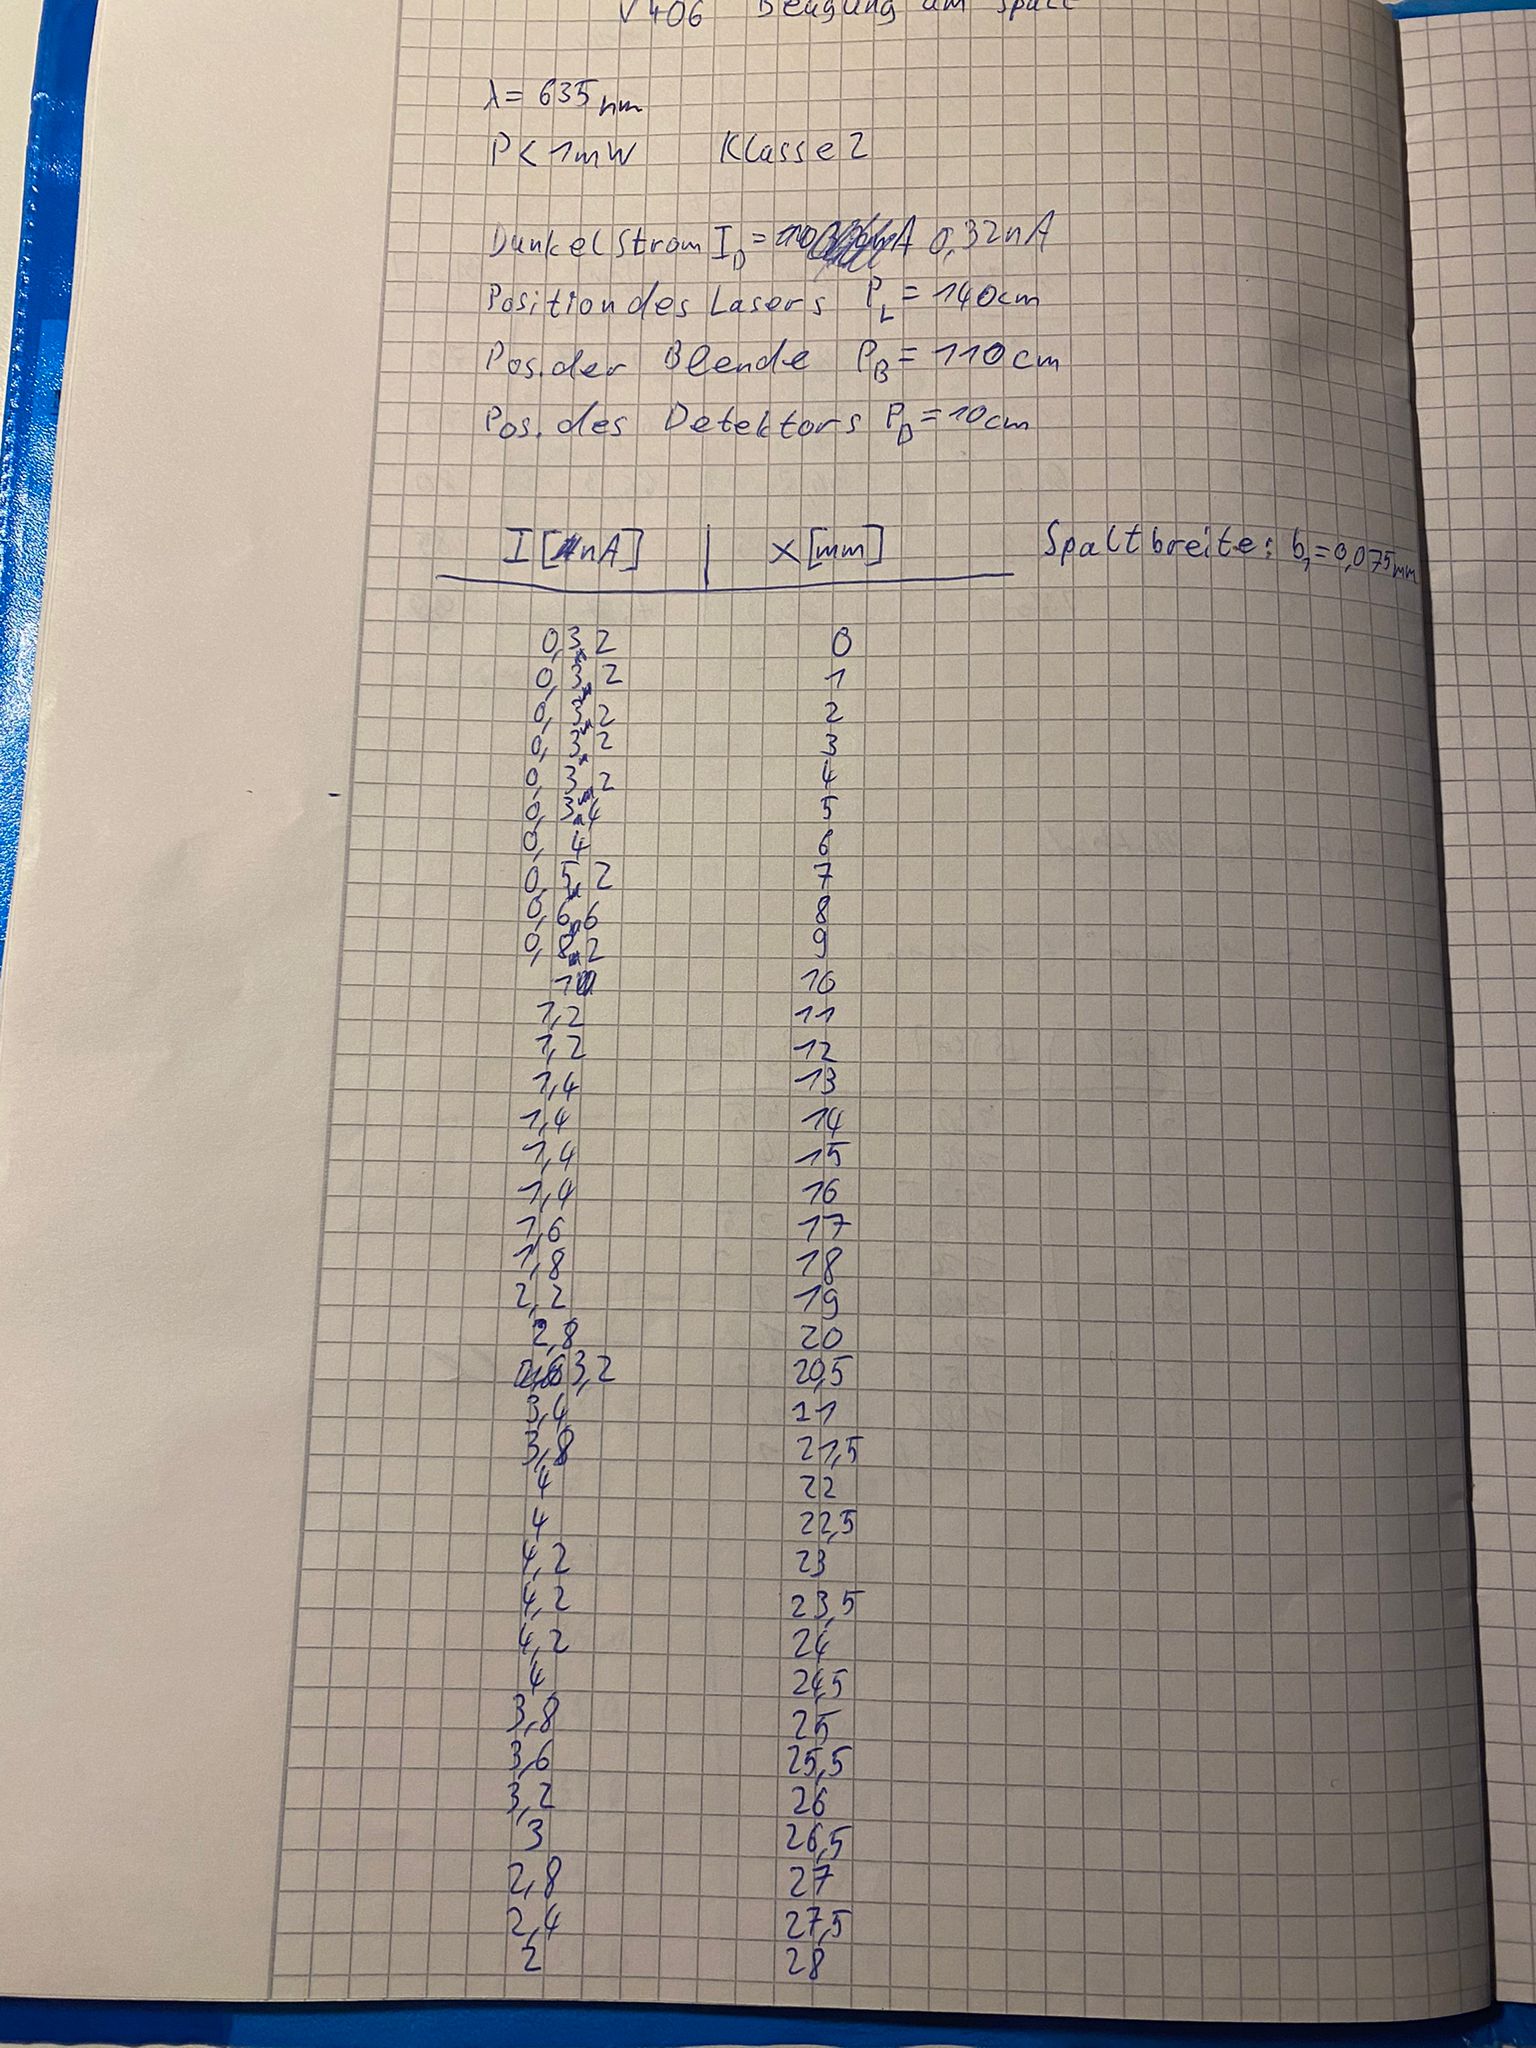 V406 Beugung am Spalt
λ = 635 nm
P < 1mW Klasse 2
Dunkelstrom I_D = 0,32nA
Position des Lasers P_L = 140cm
Pos. der Blende P_B = 110cm
Pos. des Detektors P_D = 10cm
I [nA] | x [mm] Spaltbreite: b_1 = 0,075mm
0,32 0
0,32 1
0,32 2
0,32 3
0,32 4
0,34 5
0,4 6
0,52 7
0,66 8
0,82 9
1 10
1,2 11
1,2 12
1,4 13
1,4 14
1,4 15
1,4 16
1,6 17
1,8 18
2,2 19
2,8 20
3,2 20,5
3,4 21
3,8 21,5
4 22
4 22,5
4,2 23
4,2 23,5
4,2 24
4 24,5
3,8 25
3,6 25,5
3,2 26
3 26,5
2,8 27
2,4 27,5
2 28